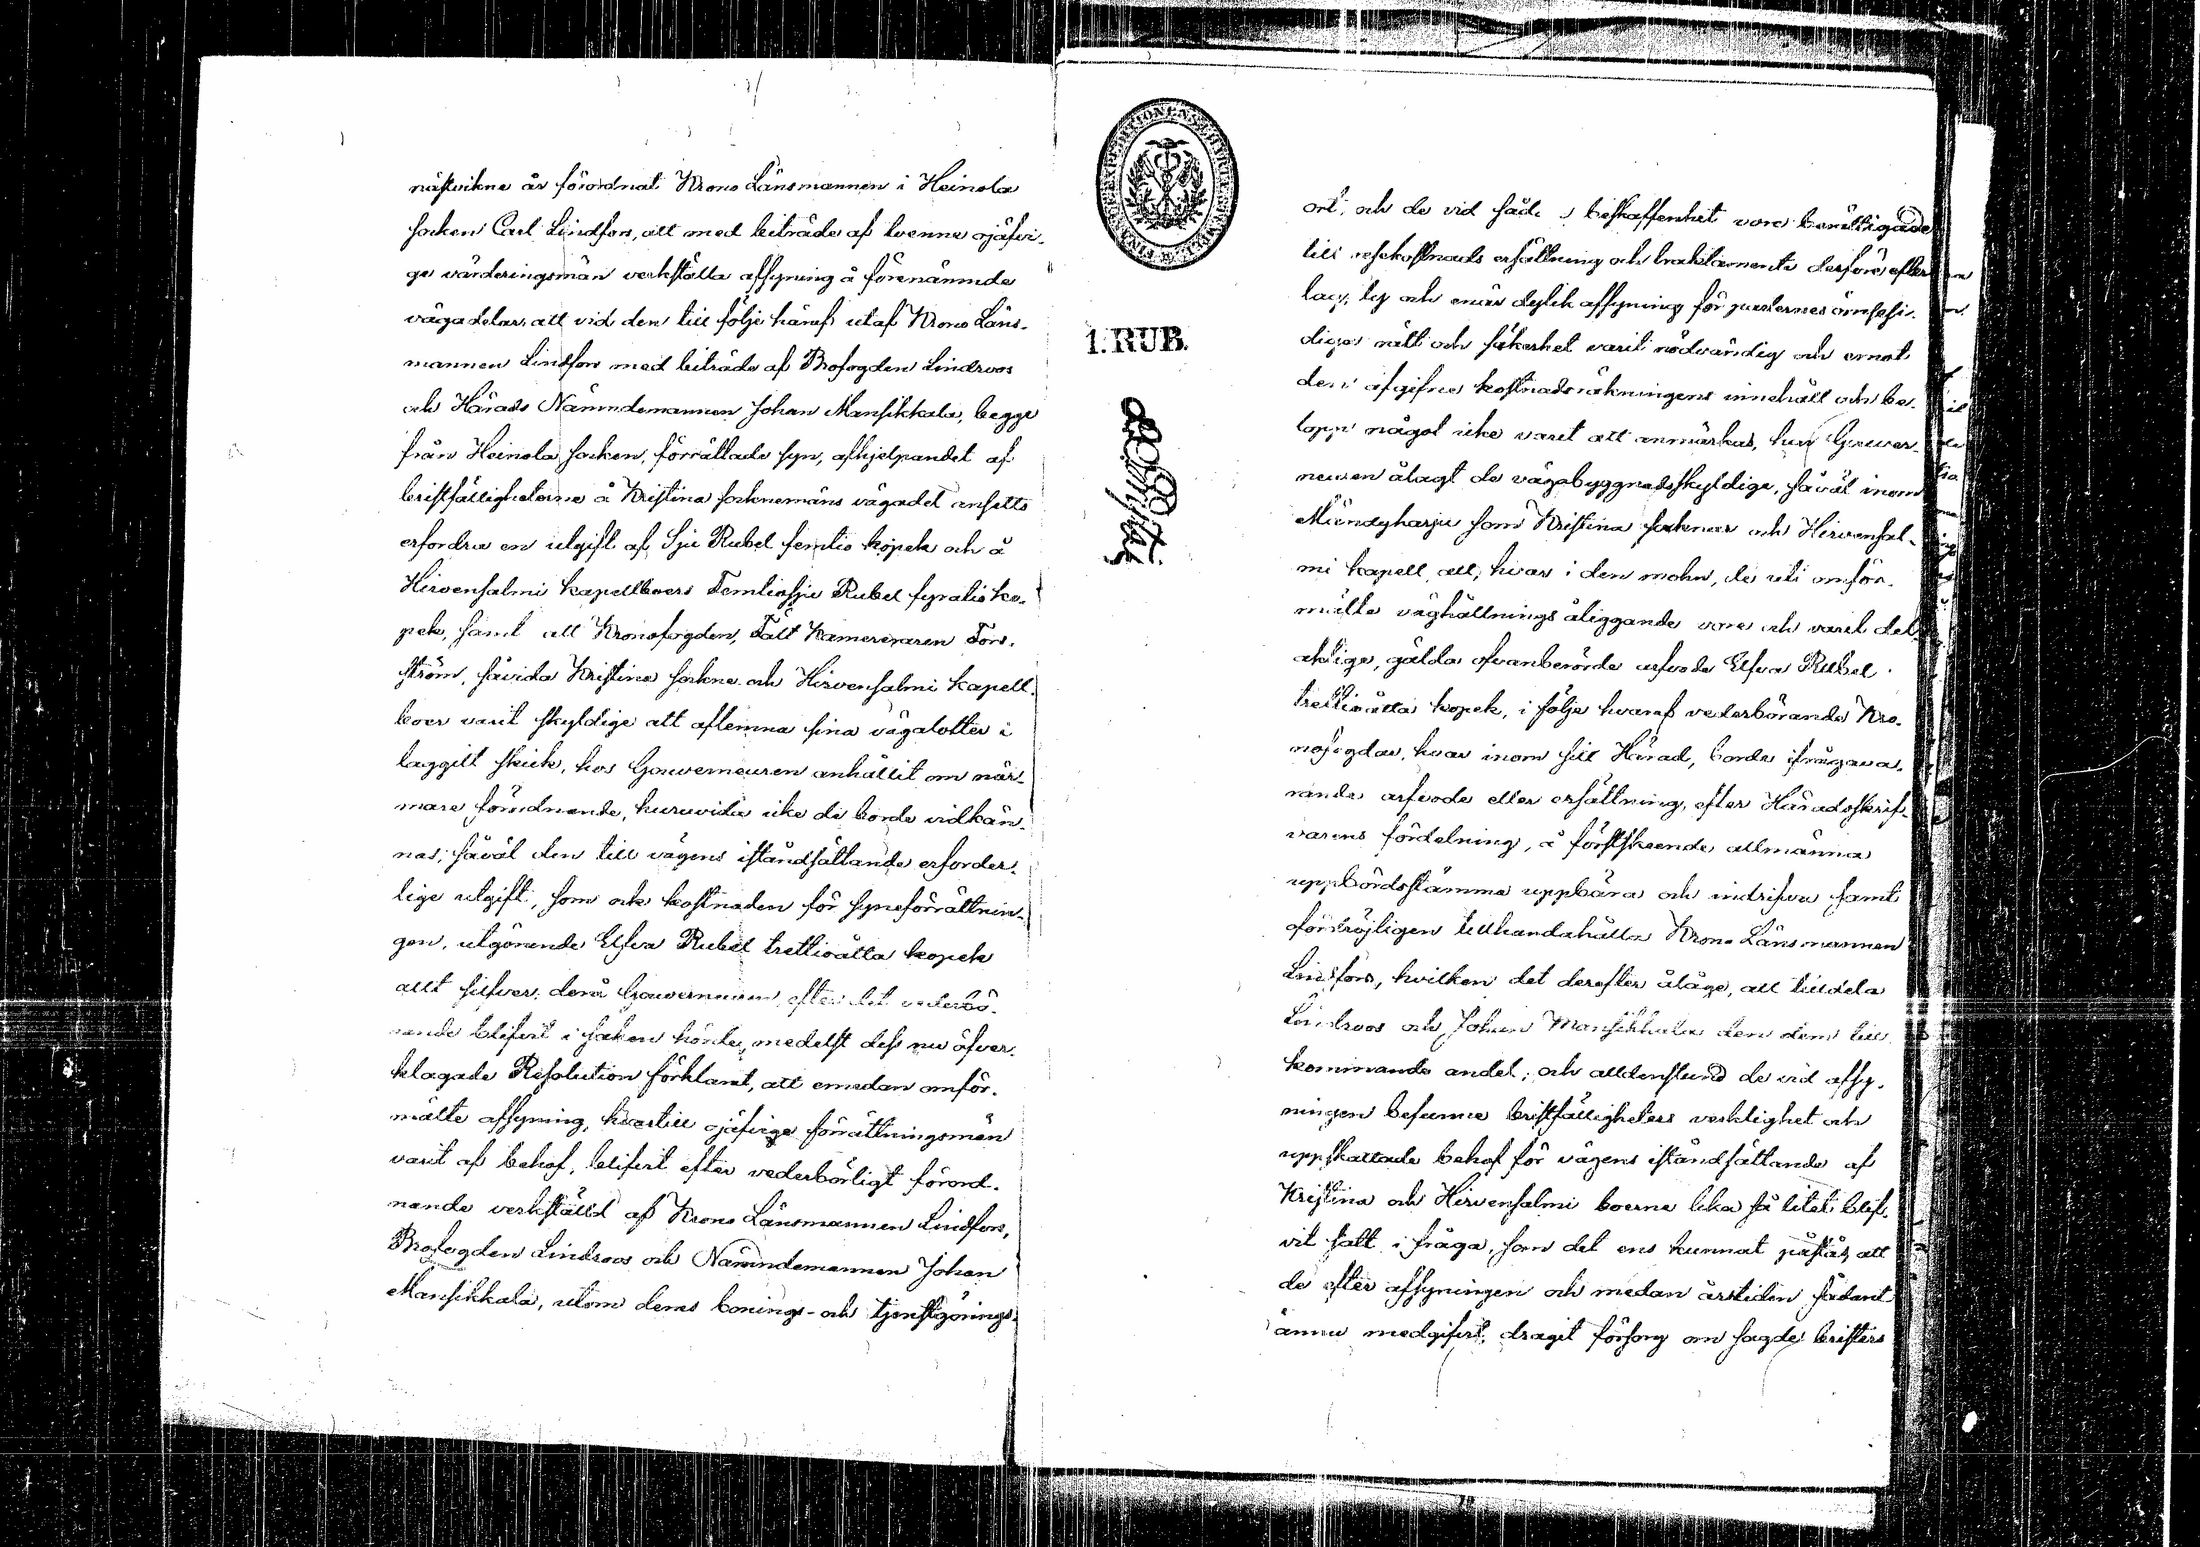 nästvikne år förordnat Krono Länsmannen i Heinola
socken Carl Lindfors, att med biträde af tvenne ojäfvi-
ge värderingsmän verkställa afsyning å förenämnde
vägadelar, att vid den till följe häraf utaf Krono Läns-
mannen Lindfors med biträde af Brofogden Lindroos
och Härads Nämndemannen Johan Mansikkala, begge
från Heinola socken, förrättade syn, afhjelpandet af
bristfälligheterne å Kristina socknemäns vägadel ansetts
erfordra en utgift af Sju Rubel femtio kopek och å
Hirvensalmi kapellboers Femtiosju Rubel fyratio ko-
pek, samt att Kronofogden, Fält Kamereraren Fors-
ström, såvida Kristina sockne och Hirvensalmi kapell-
boer varit skyldige att aflemna sina vägalotter i
laggilt skick, hos Gouverneuren anhållit om när-
mare förordnande, huruvida icke de borde vidkän-
nas, såväl den till vägens iståndsättande erforder-
lige utgift, som ock kostnaden för syneförrättnin-
gen, utgörende Elfva Rubel trettioåtta kopek
allt silfver; derå Gouverneuren, efter det vederbö-
rande blifvit i saken hörde, medelst dess nu öfver-
klagade Resolution förklarat, att emedan omför-
mälte afsyning, hvartill ojäfvige förrättningsmän
varit af behof, blifvit efter vederbörligt förord-
nande verkställd af Krono Länsmannen Lindfors,
Brofogden Lindroos och Nämndemannen Johan
Mansikkala, utom deras bonings- och tjenstgörings-
FINANCE EXPEDITIONENS
1. RUB.
ort, och de vid sådan beskaffenhet vore berättigade
till resekostnads ersättning och traktamente derföre efter
lag, ty och enär dylik afsyning för parternes ömsesi-
diga rätt och säkerhet varit nödvändig och emot
den afgifne kostnadsräkningens innehåll och be-
lopp något icke varit att anmärkas, har Gouver-
neuren ålagt de vägabyggnadsskyldige, såväl inom
Mändyharju som Kristina socknar och Hirvensal-
mi kapell att, hvar i den mohn, de uti omför-
mälte väghållnings åliggande vore och varit del-
aktige, gälda ofvanberörde arfvode Elfva Rubel
trettioåtta kopek, i följe hvaraf vederbörande Kro-
nofogdar, hvar inom sitt Härad, borde ifrågava-
rande arfvode eller ersättning, efter Häradsskrif-
varens fördelning, å förstskeende allmänna
uppbördsstämma uppbära och indrifva samt
ofördröjligen tillhandahålla Krono Länsmannen
Lindfors, hvilken det derefter åläge, att tilldela
Lindroos och Johan Mansikkala den dem till
kommande andel; och alldenstund de vid afsy-
ningen befunne bristfälligheters verklighet och
uppskattade behof för vägens iståndsättande af
Kristina och Hirvensalmi boerne lika så litet blif-
vit satt i fråga, som det ens kunnat påstås, att
de efter afsyningen och medan årstiden sådant
ännu medgifvit, dragit försorg om sagde bristers